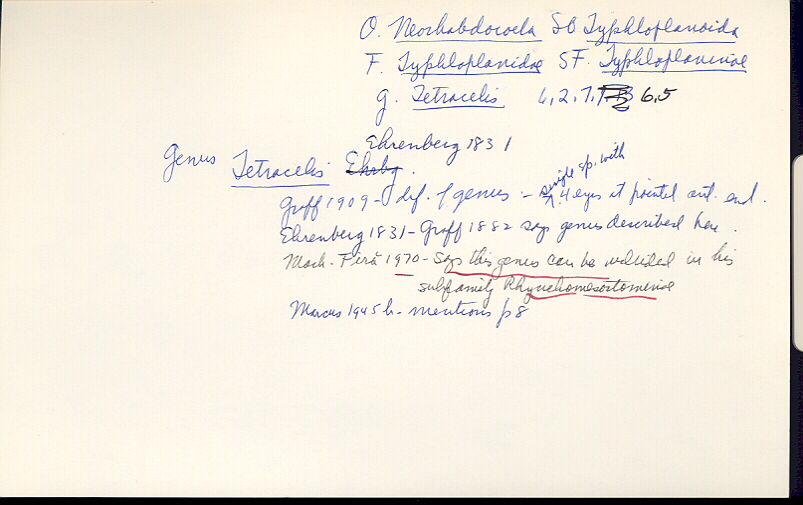 O. Neorhabdocoela SO Typhloplanoida
F. Typhloplanidae SF. Typhloplaninae
g. Tetracelis 6,2,7, 6,5
Ehrenberg 1831
Genus Tetracelis Ehrbg.
single sp. with
Graff 1909 - def. of genus - 4 eyes it pointed ant. end.
Ehrenberg 1831 - Graff 1882 says genus described here.
Mack-Fira 1970 - Says this genus can be included in his
subfamily Rhynchomesostominae
Marcus 1945b - mentions p8